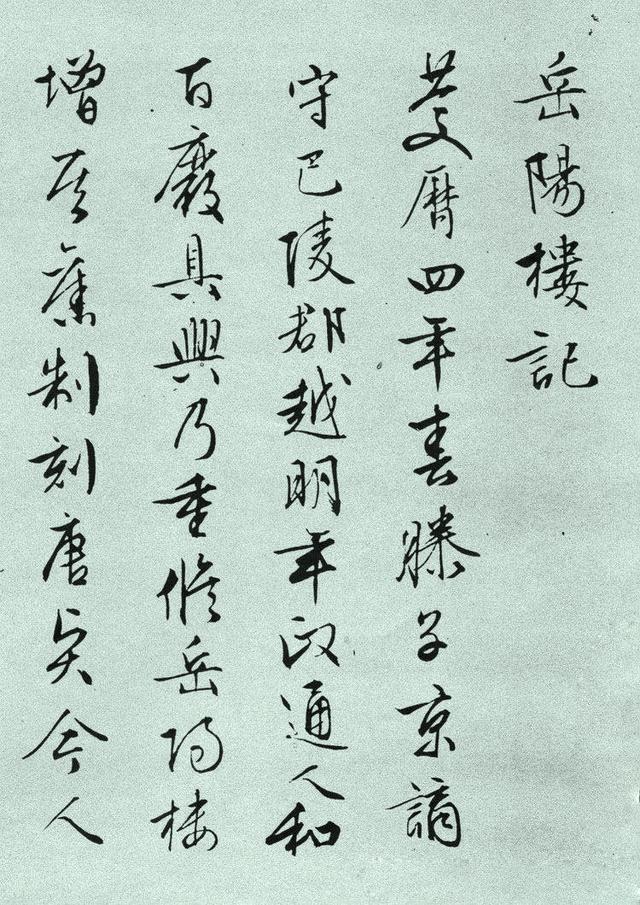 岳陽樓記
慶曆四年春滕子京謫
守巴陵郡越明年政通人和
百廢具興乃重脩岳陽樓
增其舊制刻唐賢今人